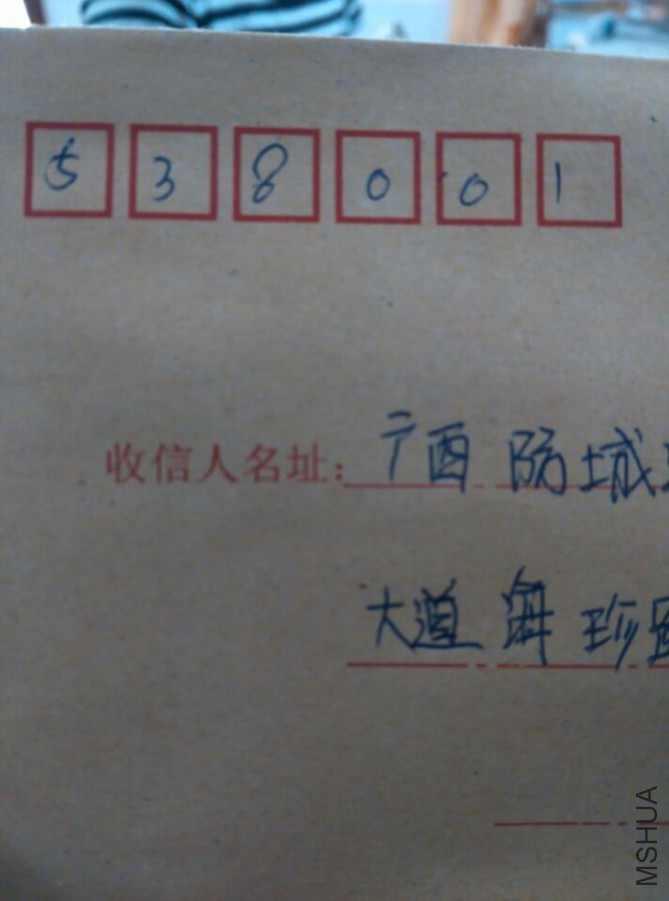 538001
收信人名址: 广西 防城
大道
MSHUA